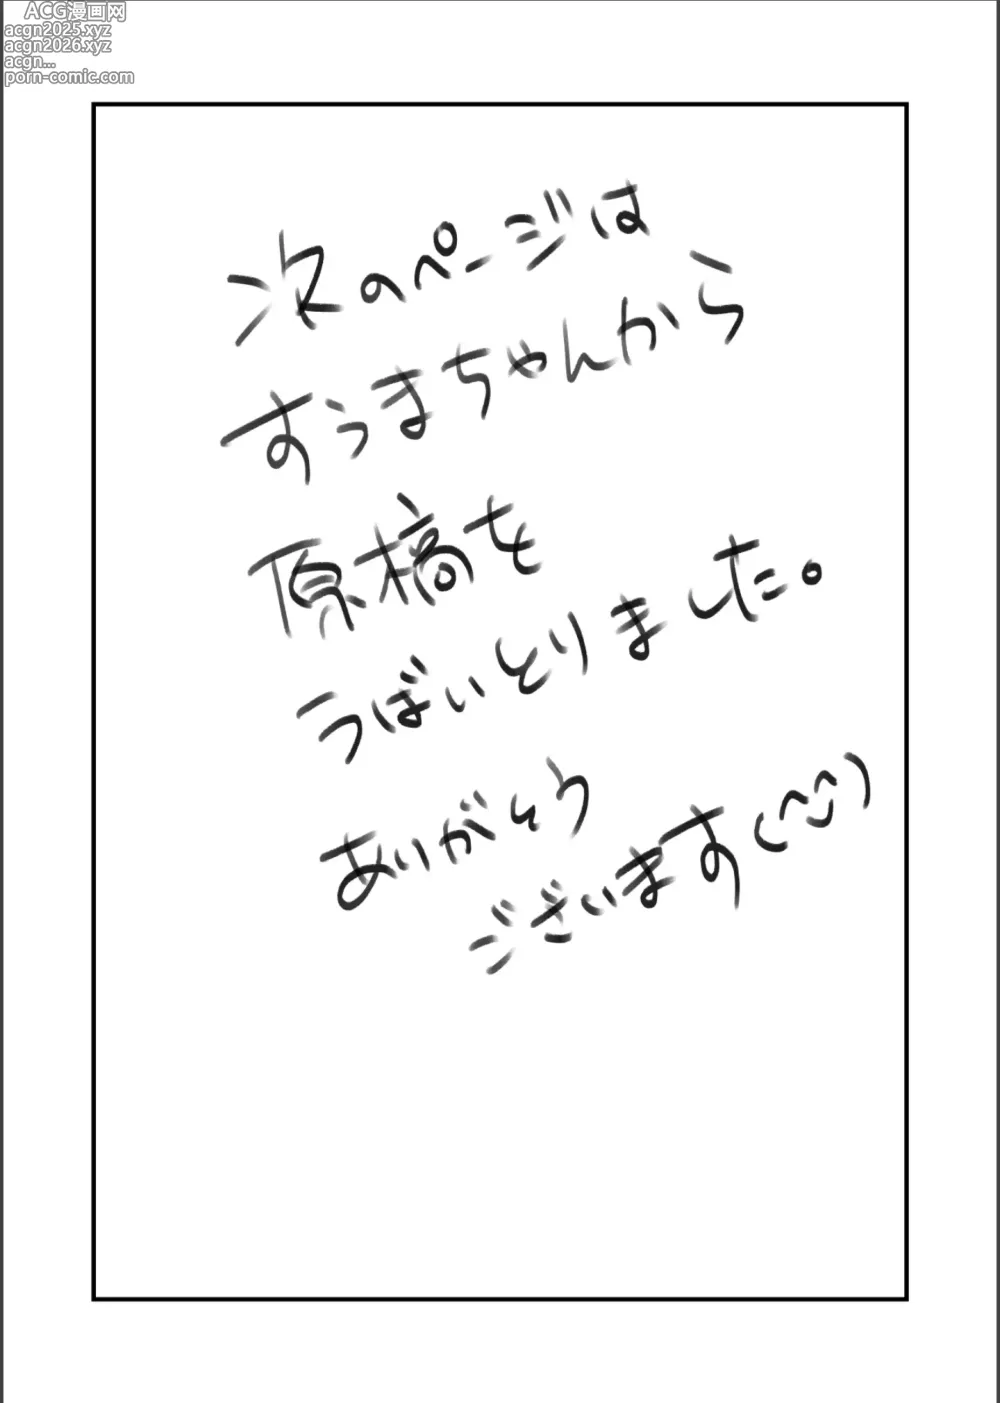 ACG漫画网
acgn2025.xyz
acgn2026.xyz
acgn...
porn-comic.com
次のページは
すぅまちゃんから
原稿を
うばいとりました。
ありがとう
ございます(^^)